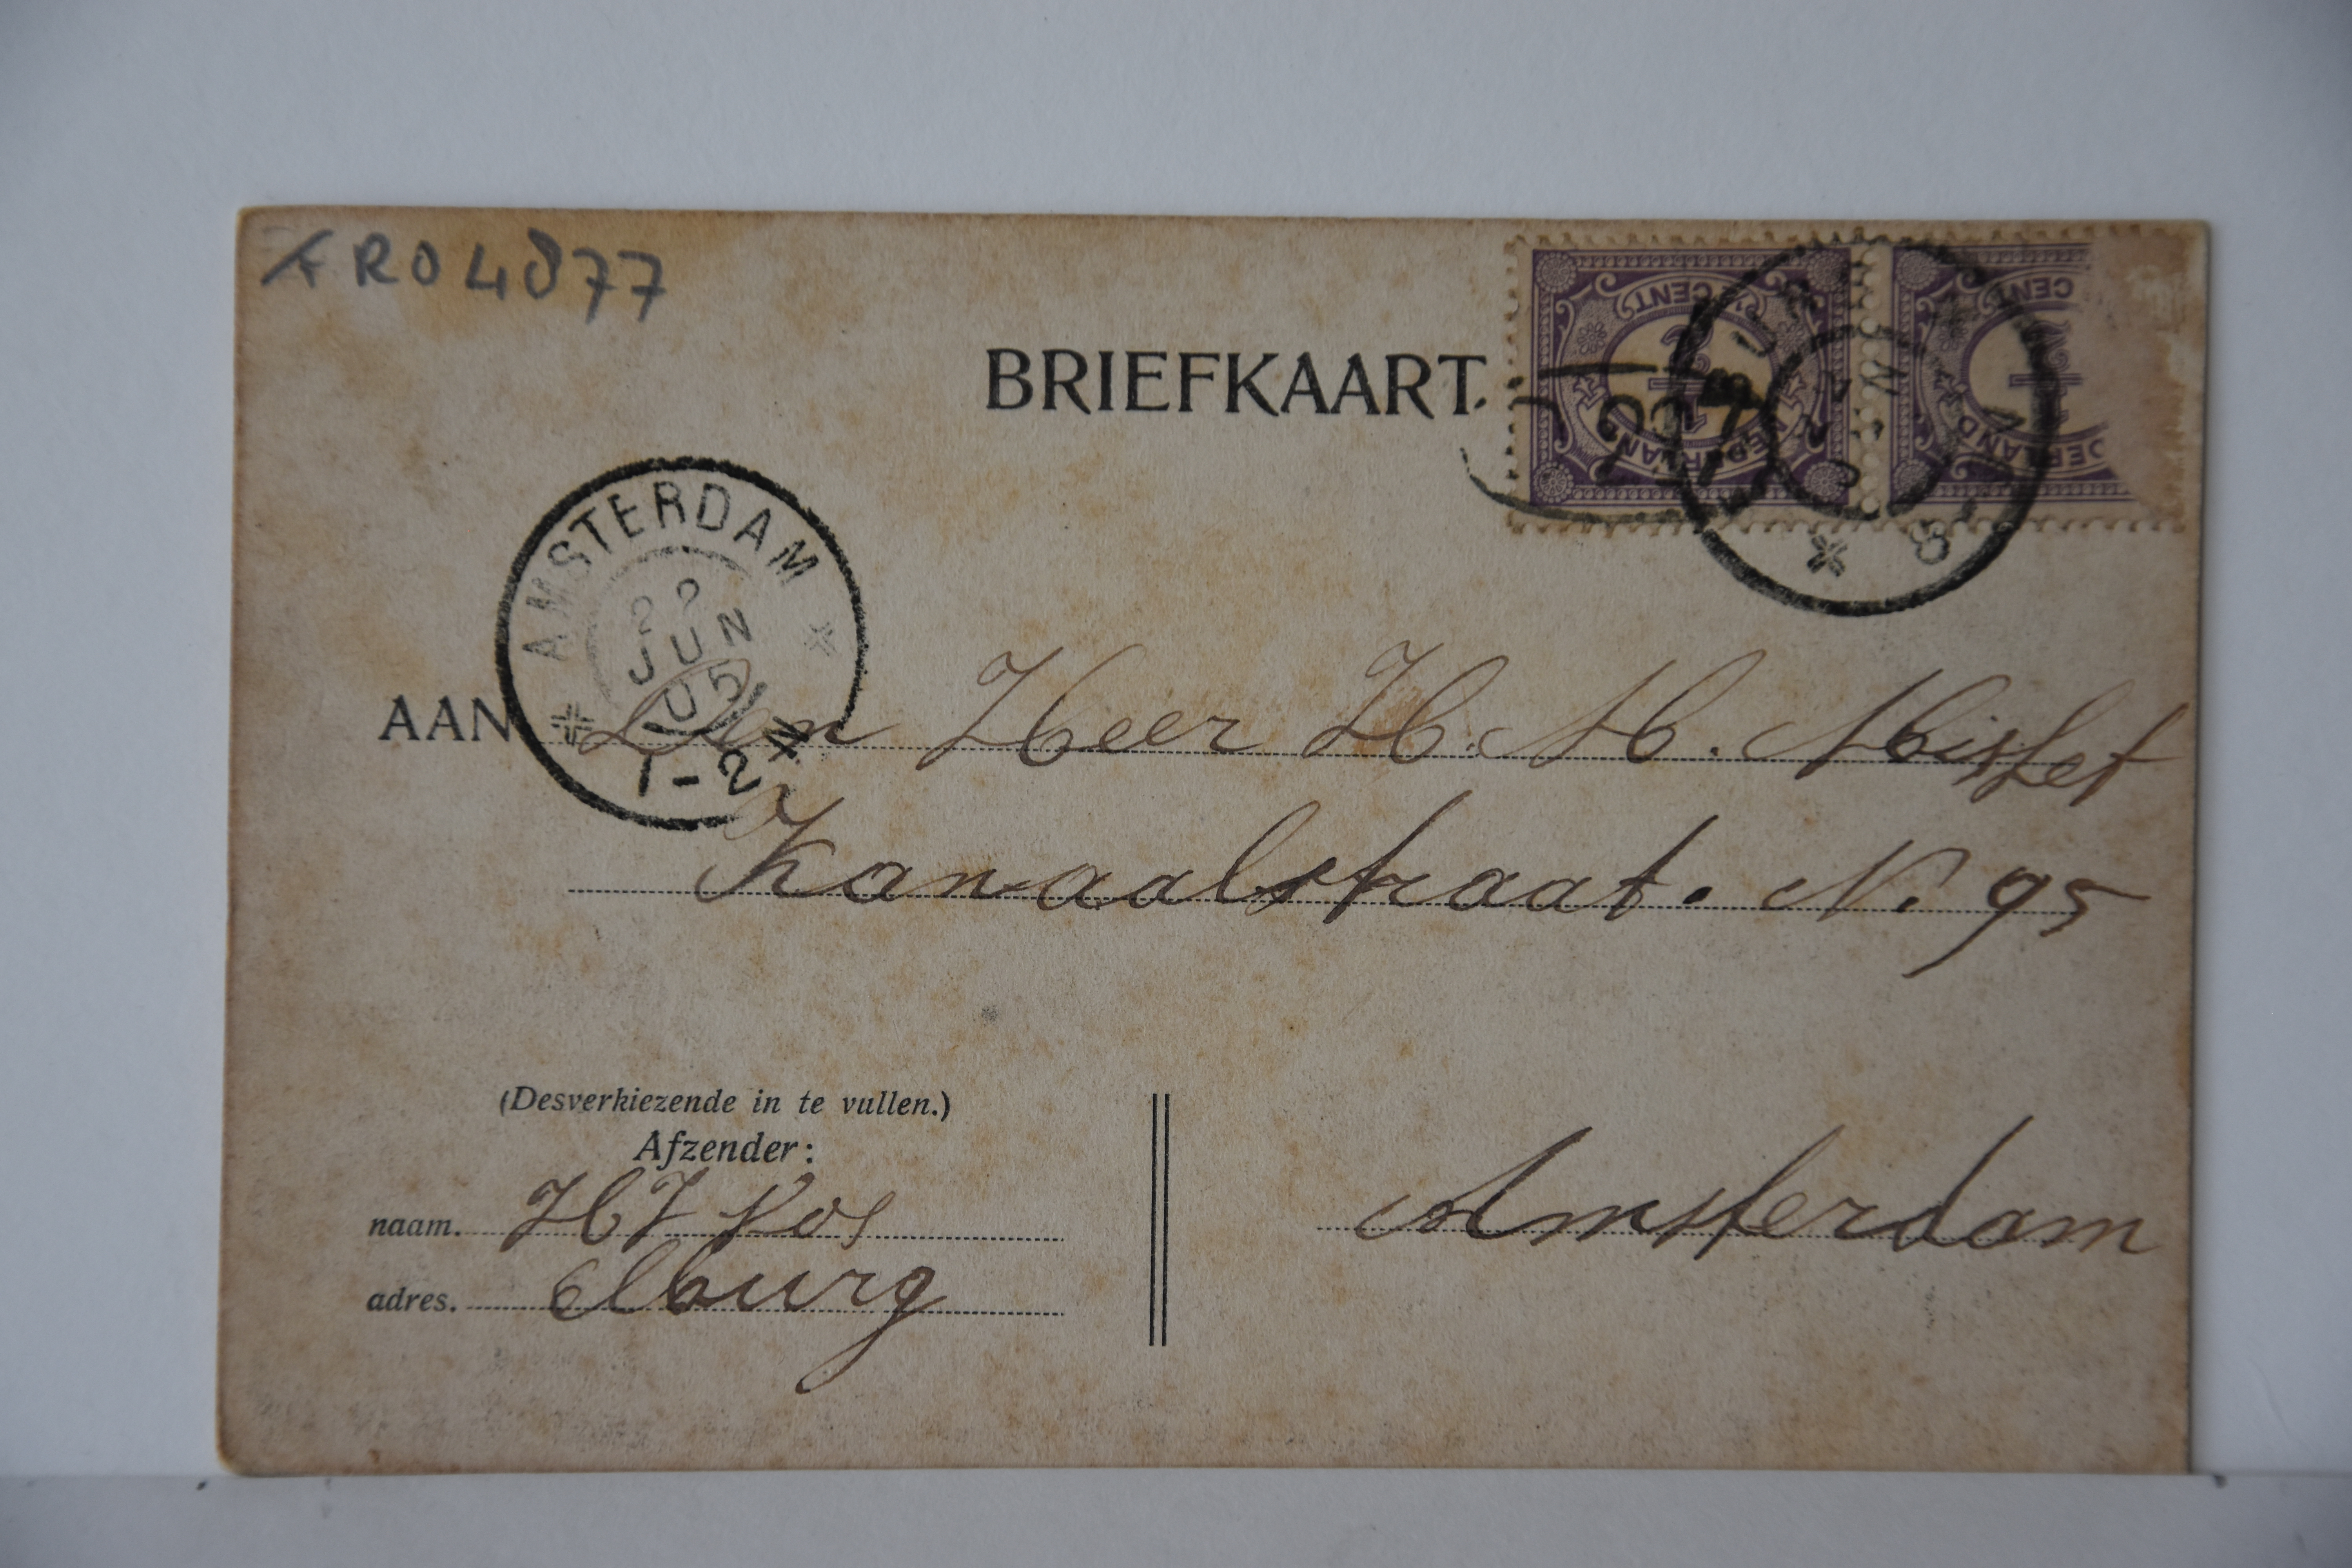 ARO4877
BRIEFKAART.
½ CENT
NEDERLAND
CENT
AMSTERDAM
JUN
05
1-2N
AAN Den Heer H. M. Misset
Kanaalstraat. N. 95
(Desverkiezende in te vullen.)
Afzender:
naam. HJ Vos
adres. Elburg
Amsterdam